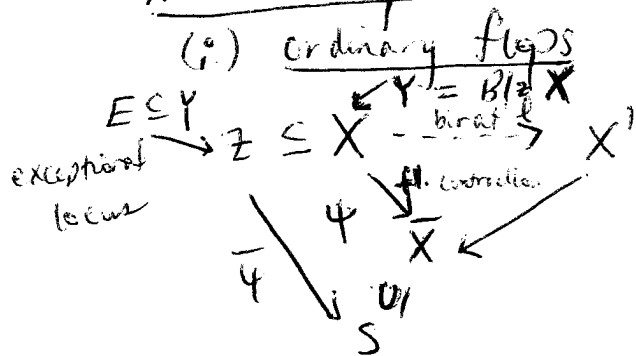 (i) ordinary flops
E ⊆ Y
Y = Bl_Z X
exceptional locus
Z ⊆ X - - birat'l - -> X'
fl. contraction
ψ
X̄
ψ̄
∪|
S